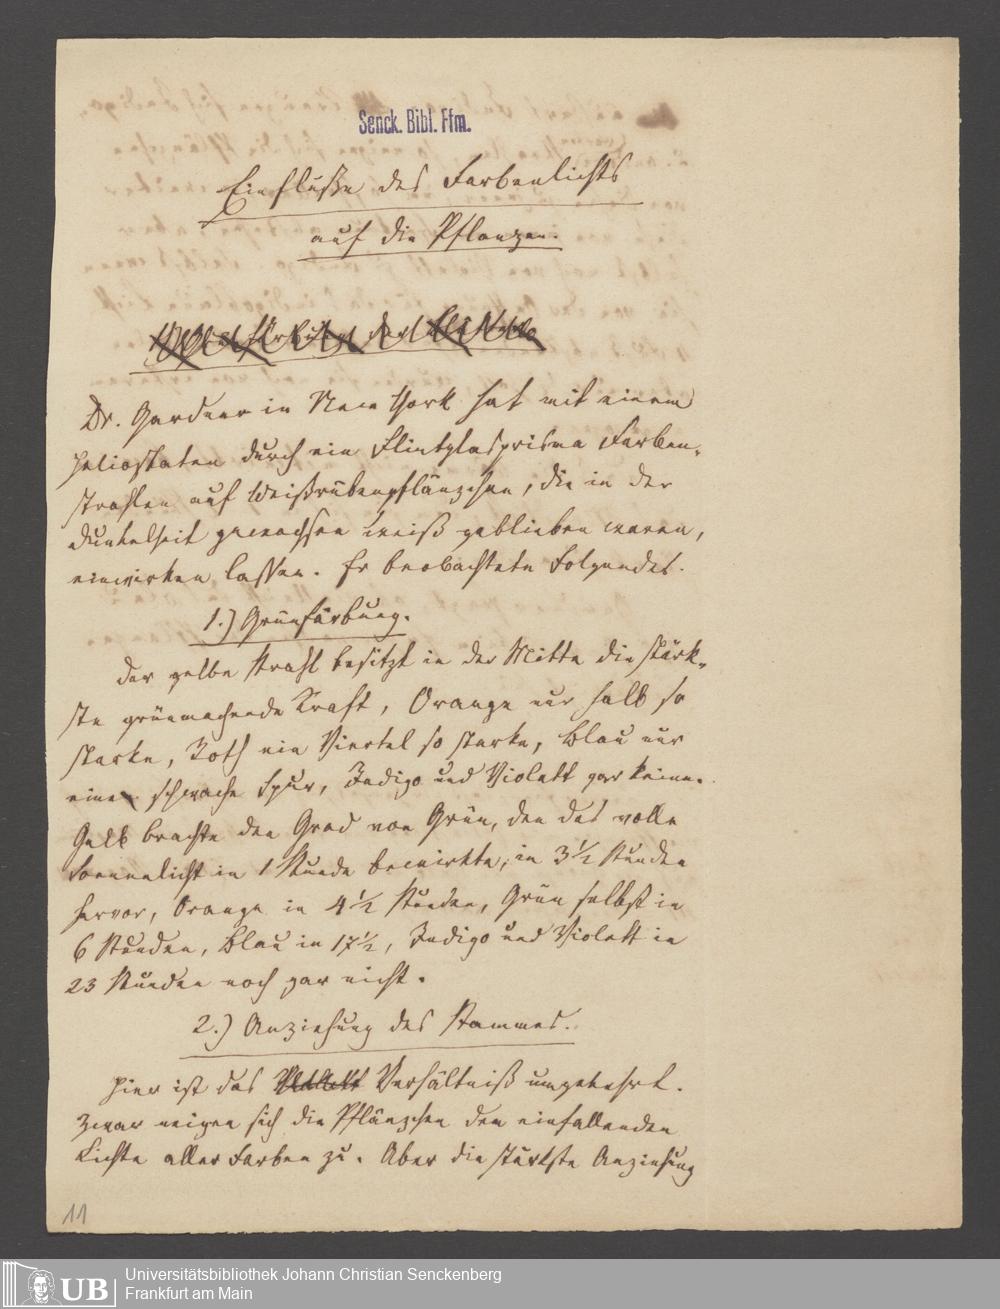 Senck. Bibl. Ffm.
Einfluße des Farbenlichts
auf die Pflanzen.
Dr. Gardner in New York hat mit einem
Heliostaten durch ein Flintglasprisma Farben-
strahlen auf Weißrübenpflänzchen, die in der
Dunkelheit gewachsen weiß geblieben waren,
einwirken lassen. Er beobachtete Folgendes.
1.) Grünfärbung.
Der gelbe Strahl besitzt in der Mitte die stärk-
ste grünmachende Kraft, Orange nur halb so
starke, Roth ein Viertel so starke, Blau nur
eine schwache Spur, Indigo und Violett gar keine.
Gelb brachte den Grad von Grün, den das volle
Sonnenlicht in 1 Stunde bewirkte, in 3 1/2 Stunden
hervor, Orange in 4 1/2 Stunden, Grün selbst in
6 Stunden, Blau in 17 1/2, Indigo und Violett in
23 Stunden noch gar nicht.
2.) Anziehung des Stammes.
Hier ist das Verhältniß umgekehrt.
Zwar neigen sich die Pflänzchen dem einfallenden
Lichte aller Farben zu. Aber die stärkste Anziehung
11
UB
Universitätsbibliothek Johann Christian Senckenberg
Frankfurt am Main